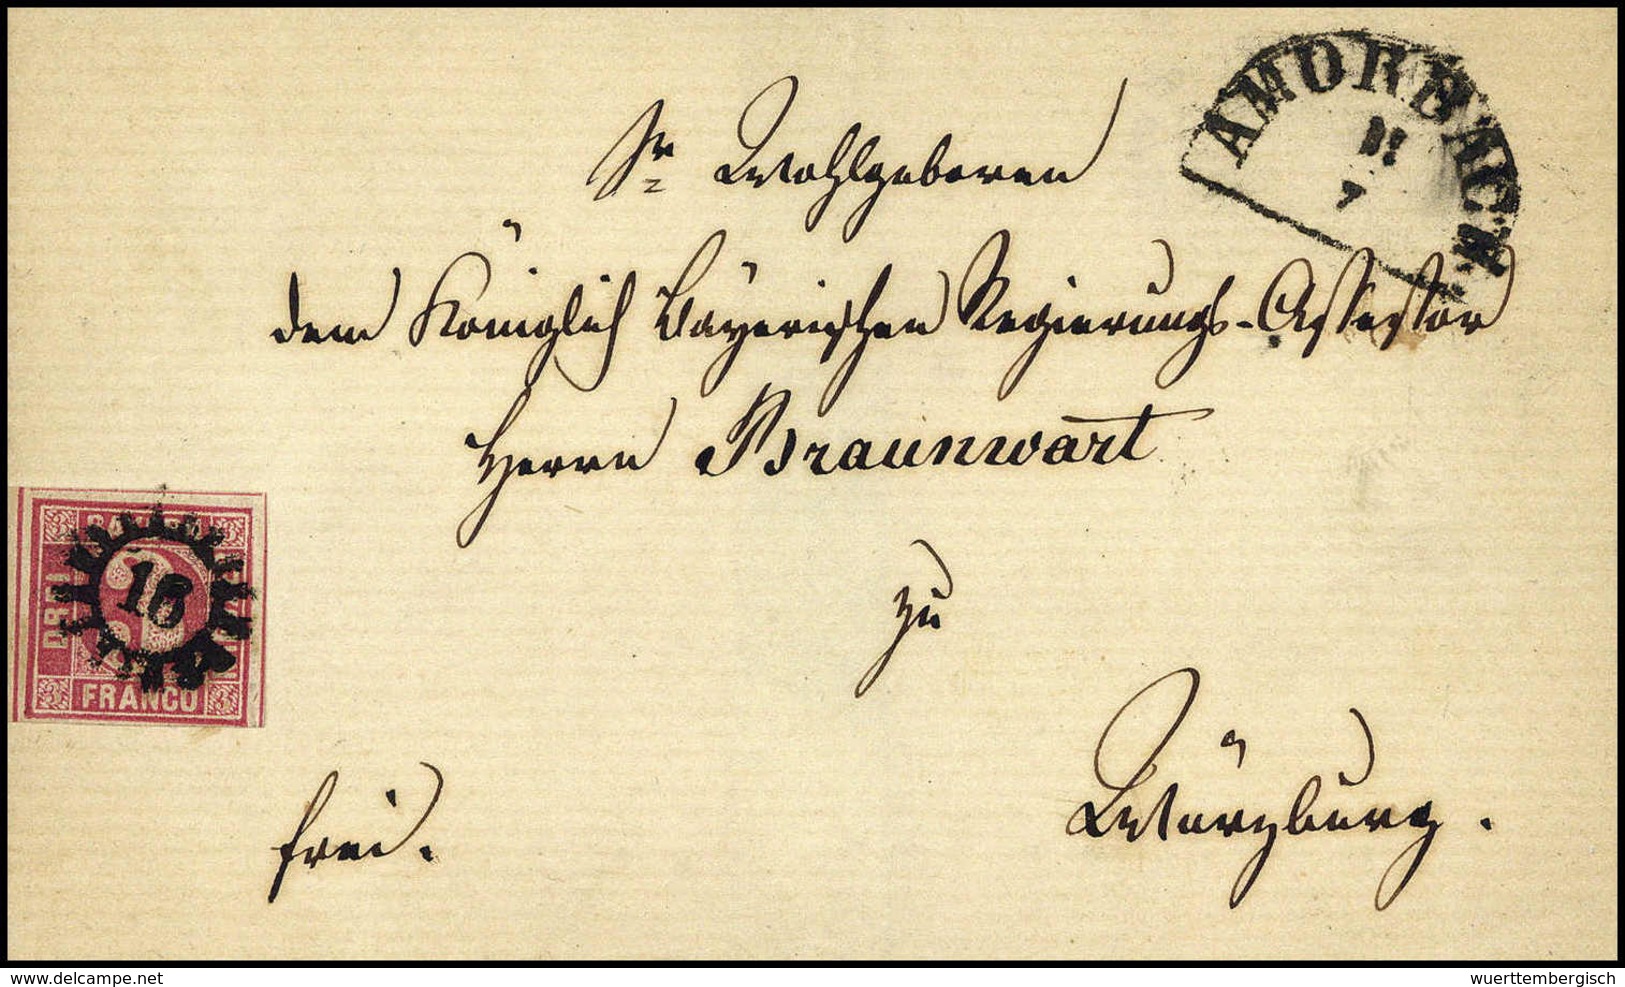 AMORBACH
7
Sr Wohlgeboren
dem Königlich Bayerischen Regierungs-Assessor
Herrn Braunwart
zu
Würzburg.
frei.
16
DREI
FRANCO
3 3
3 3
www.delcampe.net
wuerttembergisch